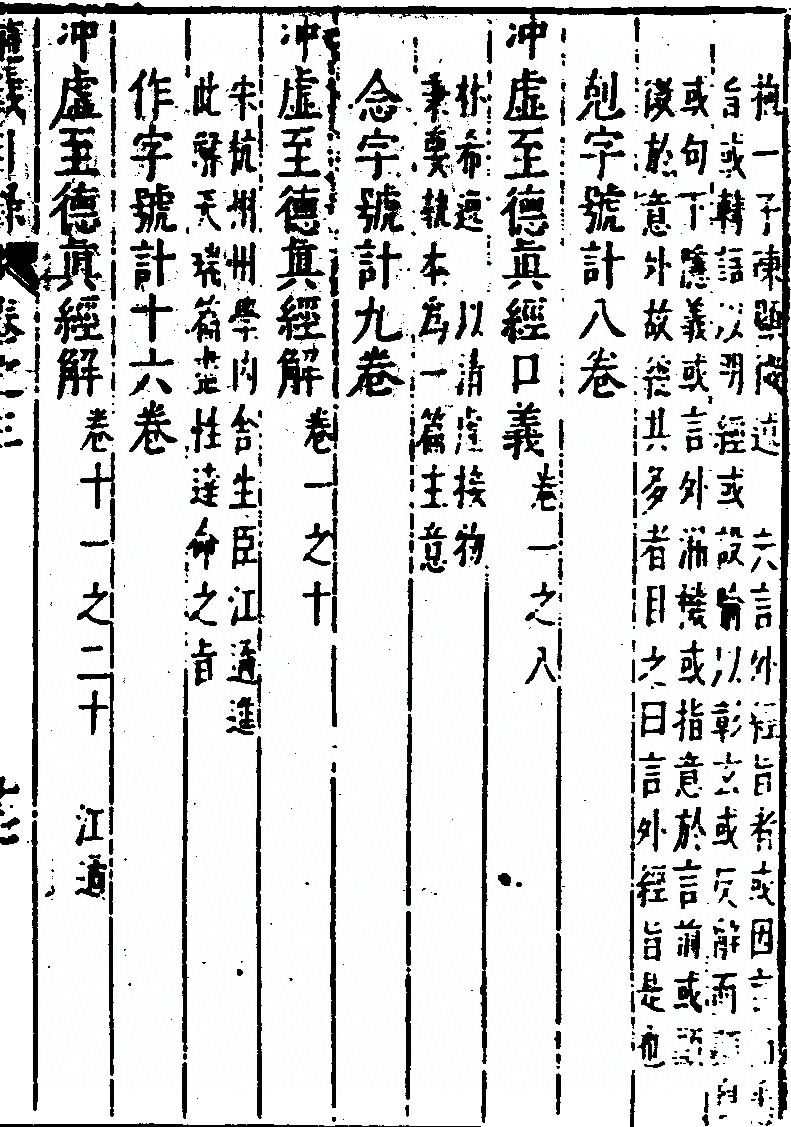 抱一子陳顯微述　六言外經旨者或因言
旨或轉語以明經或設喻以彰玄或反解而顯
或句下隱義或言外漏機或指意於言前或
後於意外故從其多者目之曰言外經旨是也
剋字號計八卷
冲虛至德眞經口義卷一之八
林希逸　以清虛接物
秉要執本爲一篇主意
念字號計九卷
冲虛至德眞經解卷一之十
宋杭州州學內舍生臣江遹進
此解天瑞篇盡性達命之旨
作字號計十六卷
冲虛至德眞經解卷十一之二十　江遹
卷之三